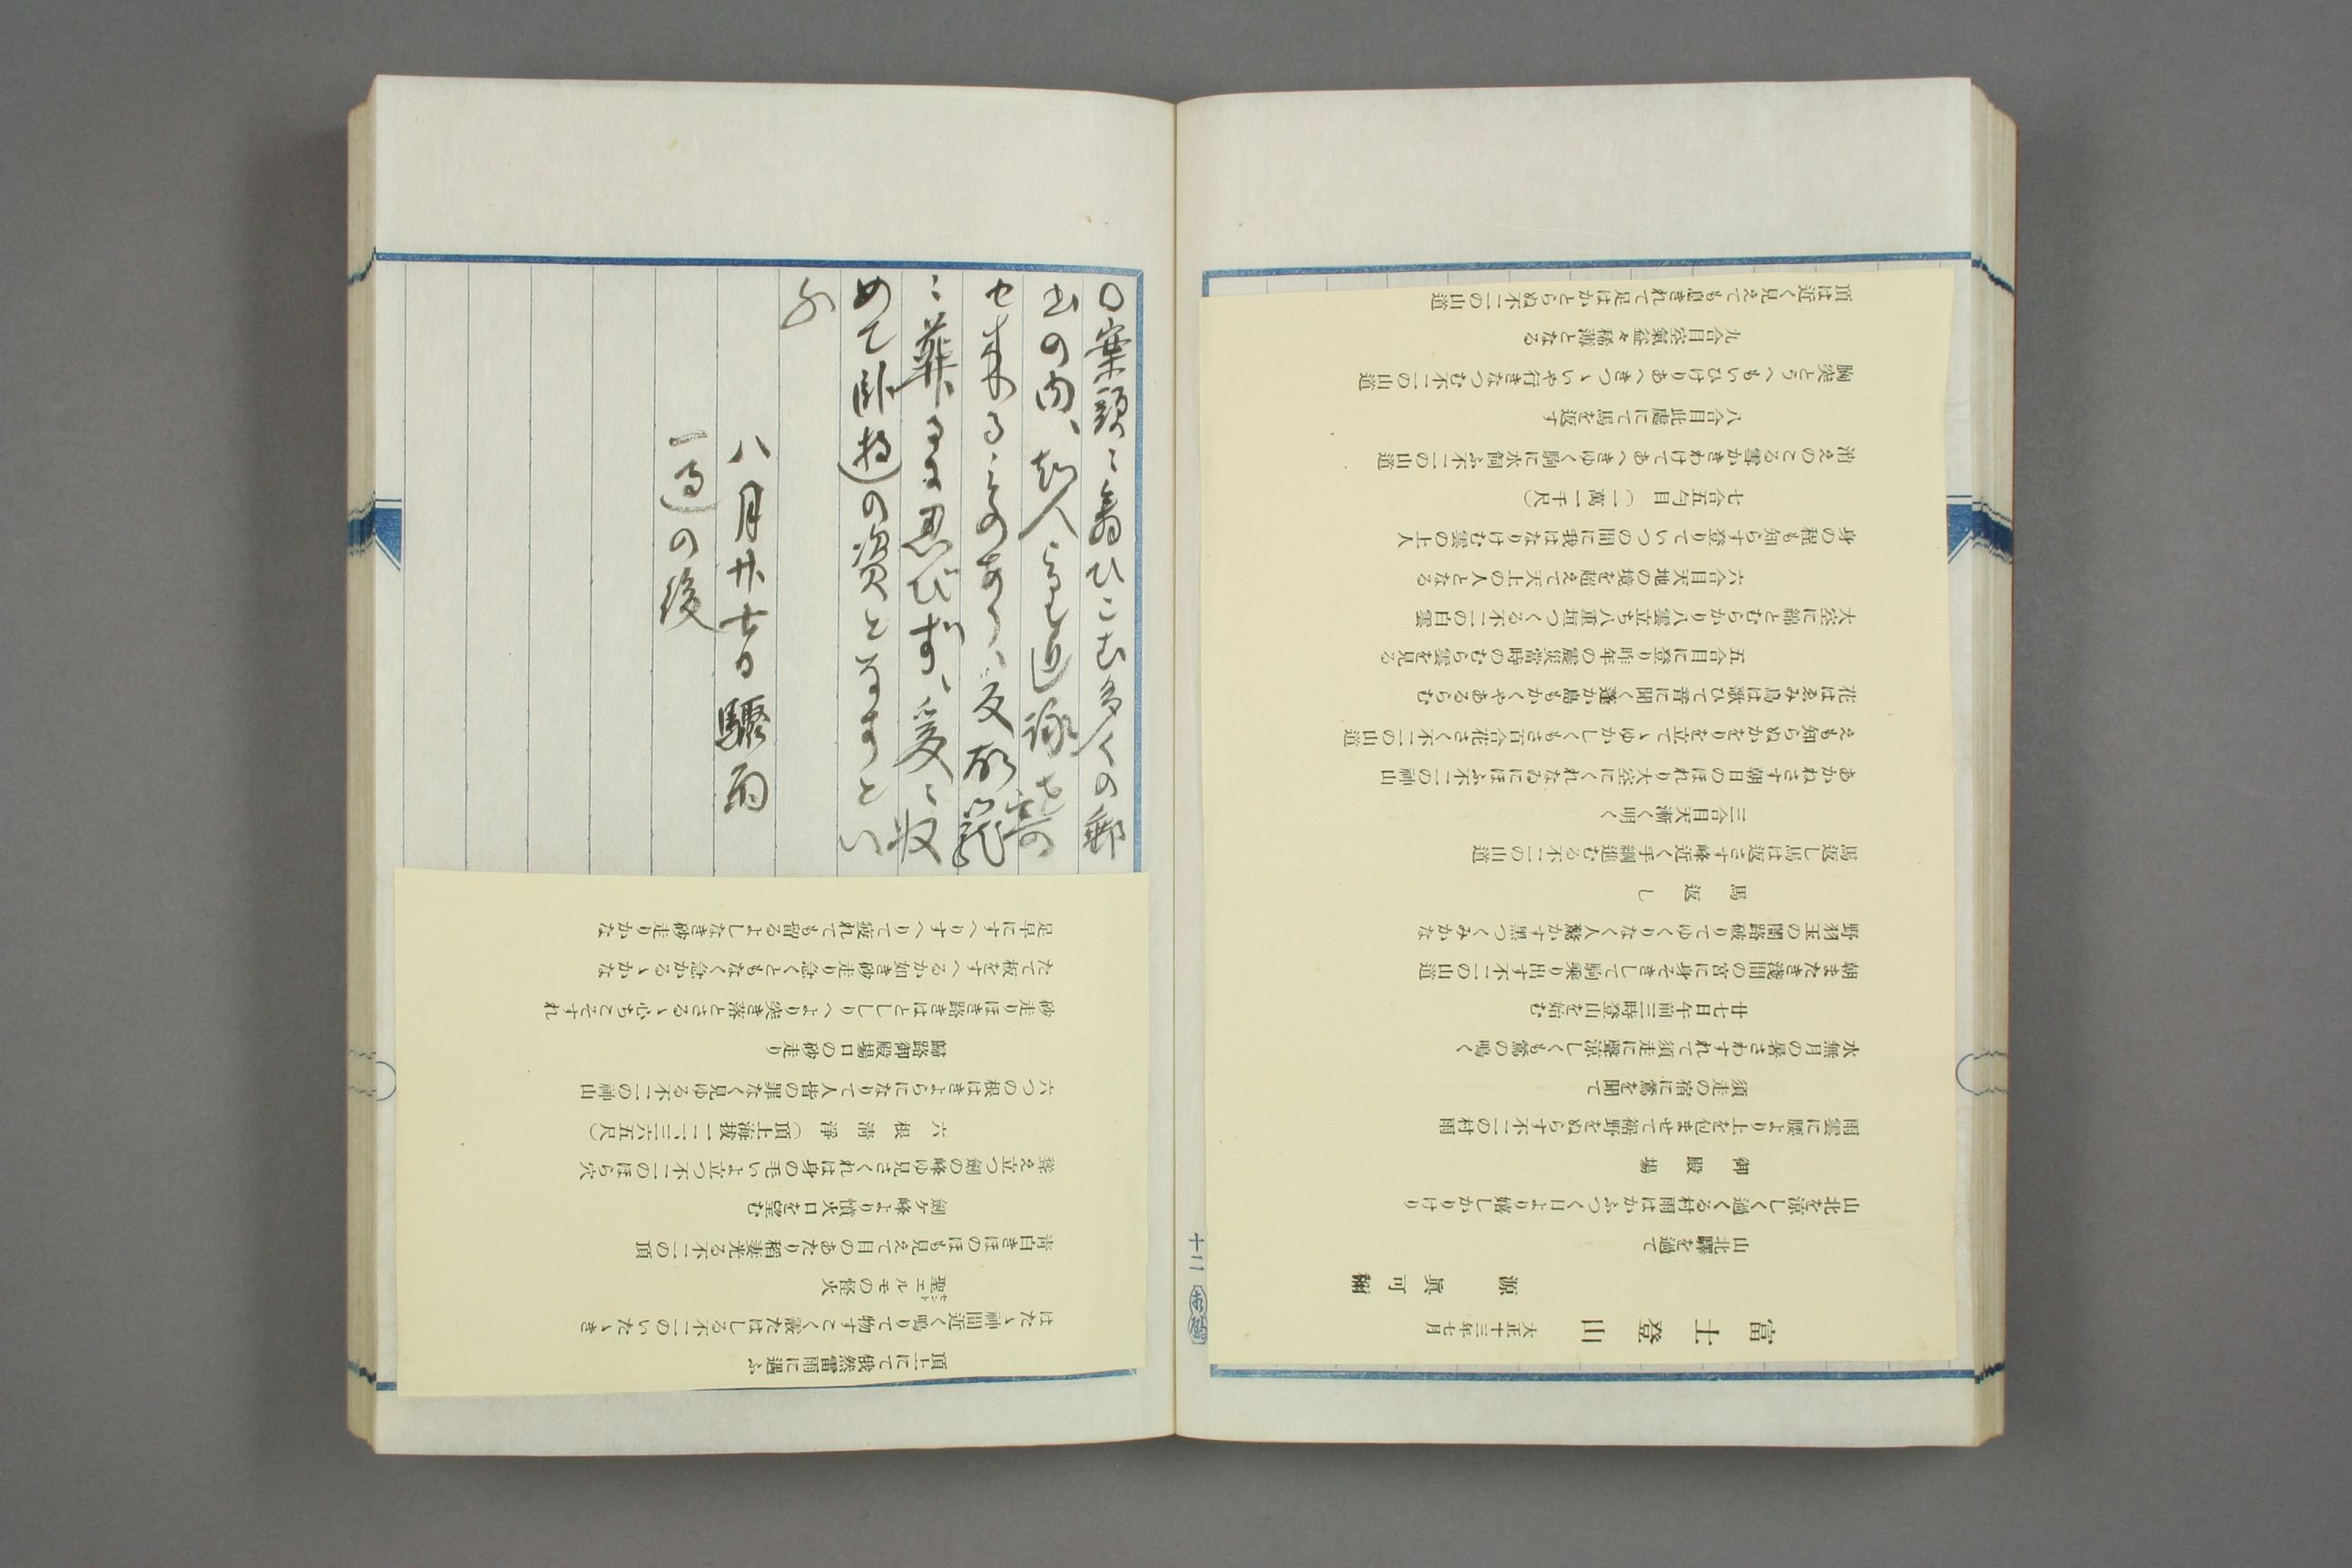 富士登山 大正十三年七月
源 眞可禰
山北驛を過て
山北を涼しく過くる村雨はかふつく日より嬉しかりけり
御殿場
雨雲に腰より上を包ませて裾野をぬらす不二の村雨
須走の宿に鶯を聞て
水無月の暑さわすれて須走に聲涼しくも鶯の鳴く
廿七日午前三時登山を始む
朝またき淺間の宮に身そきして駒乘り出す不二の山道
野羽玉の闇路破りてゆくりなく人驚かす黑つくみかな
馬返し
馬返し馬は返さす峰近く手綱進むる不二の山道
三合目天漸く明く
あかねさす朝日のほれり大空にくれなゐにほふ不二の神山
えも知らぬかをりを立てゝゆかしくもさ百合花さく不二の山道
花はゑみ鳥は歌ひて昔に聞く蓬か島もかくやあるらむ
五合目に登り昨年の震災當時のむら雲を見る
大空に綿とむらかり八雲立ち八重垣つくる不二の白雲
六合目天地の境を超えて天上の人となる
身の程も知らす登りていつの間に我はなりけむ雲の上人
七合五勺目(一萬一千尺)
消えのこる雪かきわけてあへきゆく駒に水飼ふ不二の山道
八合目此處にて馬を返す
胸突とうへもいひけりあへきつゝいや行きなつむ不二の山道
九合目空氣益々稀薄となる
頂は近く見えても息きれて足はかとらぬ不二の山道
〇案頭ニ舞ひこむ多くの郵
書の内、知人ニして近詠を寄
せ来ることのあり、反故籠
ニ葬るを忍びず、爰ニ収
めて臥遊の資となすとい
ふ
八月廿七日驟雨
一過の後
頂上にて俄然雷雨に遇ふ
はたゝ神間近く鳴りて物すこく霰たはしる不二のいたゝき
聖エルモの怪火
青白きほのほも見えて目のあたり稻妻光る不二の頂
劍ヶ峰より憤火口を望む
聳え立つ劍の峰ゆ見さくれは身の毛いよ立つ不二のほら穴
六根清淨(頂上海拔一二、三六五尺)
六つの根はきよらになりて人皆の罪なく見ゆる不二の神山
歸路御殿場口の砂走り
砂走りほき路きはとしりへより突き落とさるゝ心ちこそすれ
たて板をすへるか如き砂走り急くともなく急かるゝかな
足早にすへりすへりて疲れても留るよしなき砂走りかな
十11